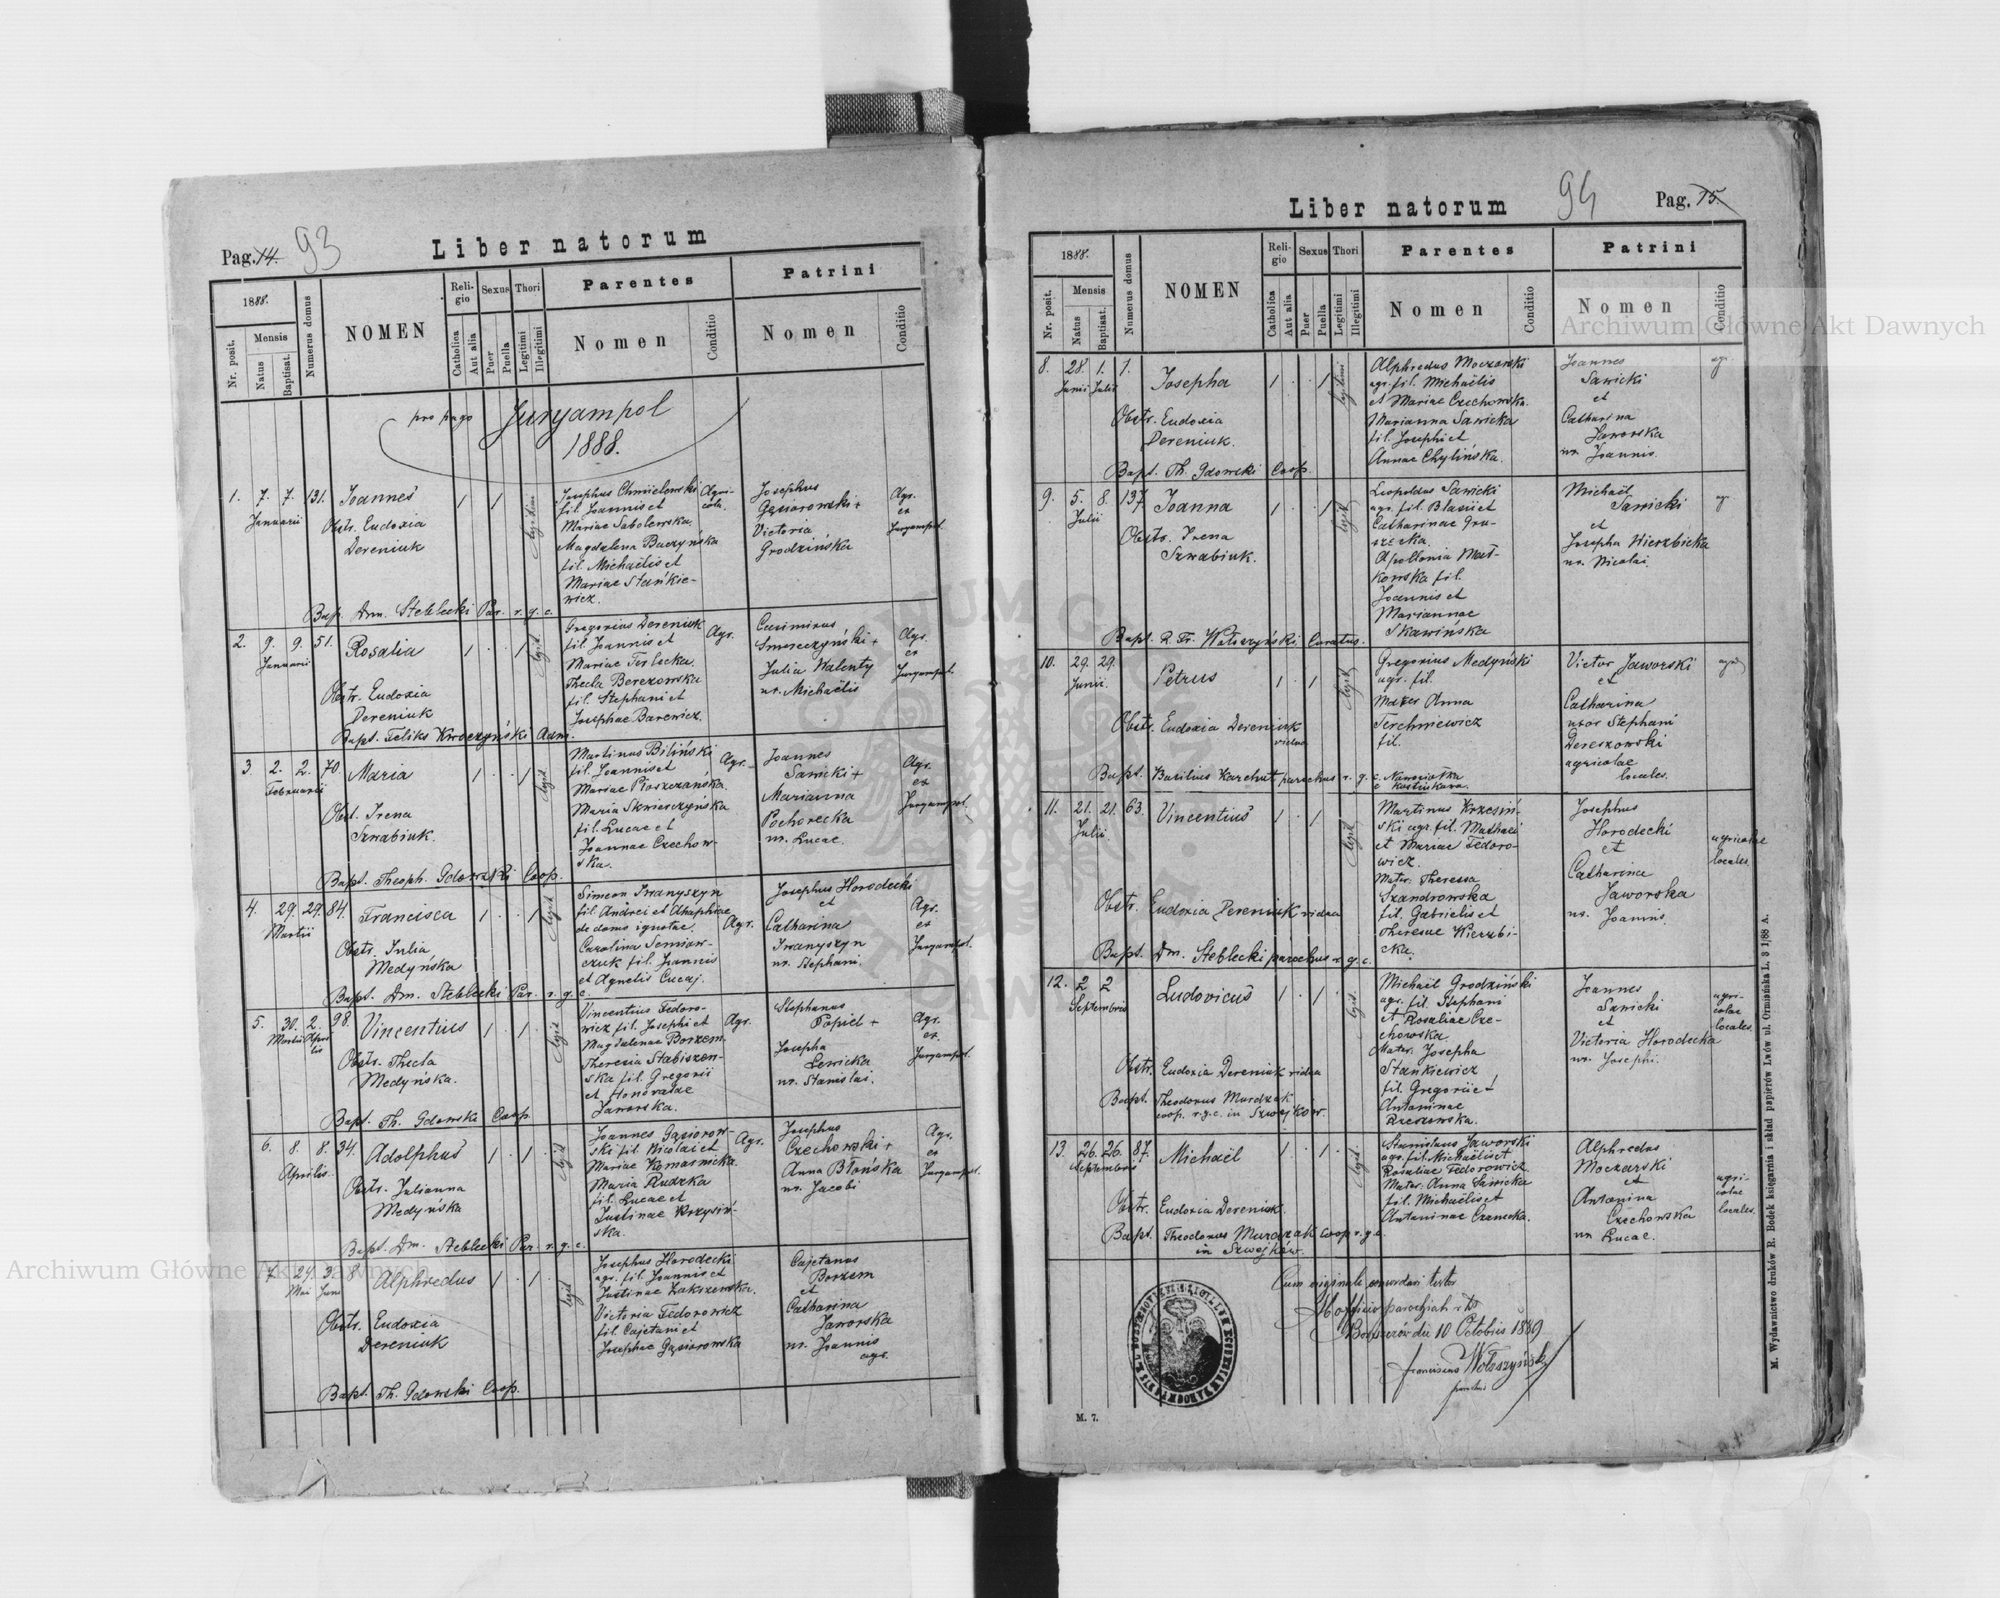 Pag. 14. 93
Liber natorum
1888.
Nr. posit.
Mensis
Natus
Baptisat.
Numerus domus
NOMEN
Religio
Catholica
Aut alia
Sexus
Puer
Puella
Thori
Legitimi
Illegitimi
Parentes
Nomen
Conditio
Patrini
Nomen
Conditio
pro pago Juryampol
1888.
1. 7. 7. 131. Joannes 1 1
Januarii
Obstr. Eudoxia
Dereniuk
Josephus Chmielowski
fil. Joannis et
Mariae Sabolewska
Magdalena Buczyńska
fil. Michaëlis et
Mariae Stańkie-
wicz.
Agri-
cola.
Josephus
Gąsiorowski +
Victoria
Grodzińska
Agr.
ex
Juryampol.
Bapt. Dm. Steblecki Par. r. g. c.
2. 9. 9. 51. Rosalia 1 . . 1
Januarii
Obstr. Eudoxia
Dereniuk
Gregorius Dereniuk
fil. Joannis et
Mariae Terlecka.
Thecla Berezowska
fil. Stephani et
Josephae Barewicz.
Agr.
Casimirus
Smereczyński +
Julia Walenty
ux. Michaëlis
Agr.
ex
Juryampol.
Bapt. Feliks Kwoczyński Adm.
3. 2. 2. 70. Maria 1 . . 1
Februarii
Obst. Irena
Szwabiuk.
Martinus Biliński
fil. Joannis et
Mariae Proszczańska.
Maria Skwierczyńska
fil. Lucae et
Joannae Czechow-
ska.
Agr.
Joannes
Sawicki +
Marianna
Pochorecka
ux. Lucae.
Agr.
ex
Juryampol.
Bapt. Theoph. Gdowski Coop.
4. 29. 29. 84. Francisca 1 . . 1
Martii
Obstr. Julia
Medyńska
Simeon Iwanyszyn
fil. Andrei et Ahaphiae
de domo ignotae.
Carolina Semiaw-
czuk fil. Joannis
et Agnetis Cucaj.
Agr.
Josephus Horodecki
et
Catharina
Iwanyszyn
ux. Stephani.
Agr.
ex
Juryampol.
Bapt. Dm. Steblecki Par. r. g. c.
5. 30. 2. 98. Vincentius 1 . 1 .
Martii Apri-
lis
Obstr. Thecla
Medyńska.
Vincentius Fedoro-
wicz fil. Josephi et
Magdalenae Borzem.
Theresia Stabiszew-
ska fil. Gregorii
et Honoratae
Jaworska.
Agr.
Stephanus
Popiel +
Josepha
Lewicka
ux. Stanislai.
Agr.
ex
Juryampol.
Bapt. Th. Gdowski Coop.
6. 8. 8. 34. Adolphus 1 . 1 .
Aprilis.
Obstr. Julianna
Medyńska
Joannes Gąsiorow-
ski fil. Nicolai et
Mariae Komarnicka.
Maria Rudzka
fil. Lucae et
Justinae Krzysiń-
ska.
Agr.
Josephus
Czechowski +
Anna Błońska
ux. Jacobi
Agr.
ex
Juryampol.
Bapt. Dm. Steblecki Par. r. g. c.
7. 24. 3. 8. Alphredus 1 . 1 .
Mai Juni
Obstr. Eudoxia
Dereniuk
Josephus Horodecki
agr. fil. Joannis et
Justinae Zakrzewska.
Victoria Fedorowicz
fil. Cajetani et
Josephae Gąsiorowska
Cajetanus
Borzem
et
Catharina
Jaworska
ux. Joannis
agr.
Bapt. Th. Gdowski Coop.
Liber natorum
94 Pag. 15.
1888.
Nr. posit.
Mensis
Natus
Baptisat.
Numerus domus
NOMEN
Religio
Catholica
Aut alia
Sexus
Puer
Puella
Thori
Legitimi
Illegitimi
Parentes
Nomen
Conditio
Patrini
Nomen
Conditio
8. 28. 1. 1. Josepha 1 . . 1
Junii Julii
Obstr. Eudoxia
Dereniuk.
Alphredus Moczarski
agr. fil. Michaëlis
et Mariae Czechowska.
Marianna Sawicka
fil. Josephi et
Annae Chylińska.
Joannes
Sawicki
et
Catharina
Jaworska
ux. Joannis.
agr.
Bapt. Th. Gdowski Coop.
9. 5. 8. 137. Joanna 1 . . 1
Julii
Obstr. Irena
Szwabiuk.
Leopoldus Sawicki
agr. fil. Blasii et
Catharinae Gru-
szecka.
Apollonia Mał-
kowska fil.
Joannis et
Mariannae
Skawińska
Michaël
Sawicki
et
Josepha Wierzbicka
ux. Nicolai.
agr.
Bapt. R. Fr. Wołoszyński Curatus.
10. 29. 29. Petrus 1 . 1
Junii.
Obstr. Eudoxia Dereniuk
vidua
Gregorius Medyński
agr. fil.
Mater Anna
Terchniewicz
fil.
Victor Jaworski
et
Catharina
uxor Stephani
Dereszowski
agricolae
locales.
agr.
Bapt. Basilius Karchut parochus r. g. c.
11. 21. 21. 63. Vincentius 1 . 1
Julii.
Obstr. Eudoxia Dereniuk vidua
Martinus Krzesiń-
ski agr. fil. Mathaei
et Mariae Fedoro-
wicz.
Mater: Theressa
Szandrowska
fil. Gabrielis et
Theresae Wierzbi-
cka.
Josephus
Horodecki
et
Catharina
Jaworska
ux. Joannis.
agricolae
locales.
Bapt. Dm. Steblecki parochus r. g. c.
12. 2 2 Ludovicus 1 . 1 .
Septembris
Obstr. Eudoxia Dereniuk vidua
Bapt. Theodorus Murdzak
coop. r.g.c. in Szwejków.
Michaël Grodziński
agr. fil. Stephani
et Rosaliae Cze-
chowska.
Mater. Josepha
Stańkiewicz
fil. Gregorii et
Antoninae
Rzeszowska.
Joannes
Sawicki
et
Victoria Horodecka
ux. Josephi.
agri-
colae
locales.
13. 26. 26. 87. Michaël 1 . 1 .
Septembris
Obstr. Eudoxia Dereniuk.
Bapt. Theodorus Murdzak Coop r. g. c.
in Szwejków.
Stanislaus Jaworski
agr. fil. Michaëlis et
Rosaliae Fedorowicz.
Mater: Anna Sawicka
fil. Michaëlis et
Antoninae Czanecka.
Alphredus
Moczarski
et
Antonina
Czechowska
ux. Lucae.
agri-
colae
locales.
Cum originale concordari testor
Ab officio parochiali r. lt.
Boryszków die 10 Octobris 1889
Franciscus Wołoszyński
parochus
M. 7.
M. Wydawnictwo druków R. Bodek księgarnia i skład papierów Lwów ul. Ormiańska L. 3 1/88 A.
Archiwum Główne Akt Dawnych
Archiwum Główne Akt Dawnych